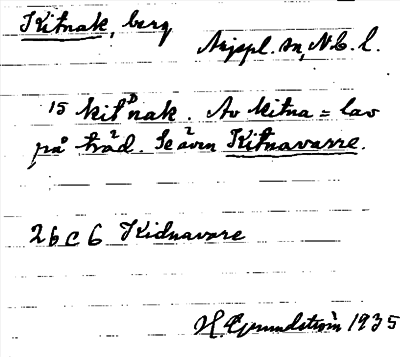 Kitnak, berg
Arjepl. sn, N.b. l.
15 kitᴰnak. Av kitna = lav
på träd. Se även Kitnavarre.
2 b c 6 Kidnavare
H. Grundström 1935